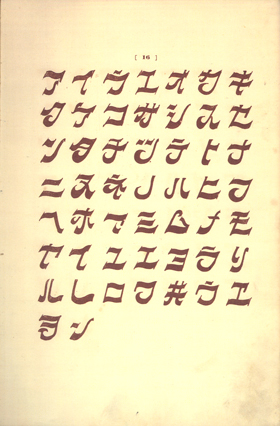 [ 16 ]
アイウエオカキ
クケコサシスセ
ソタチツテトナ
ニヌネノハヒフ
ヘホマミムメモ
ヤイユエヨラリ
ルレロワヰウヱ
ヲン